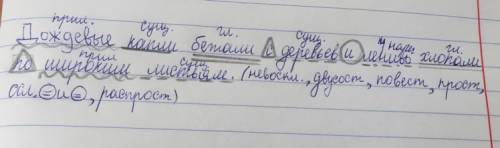 прил. сущ. гл. сущ. нар. гл.
Дождевые капли бежали с деревьев и лениво хлопали
прил. сущ.
по широким листьям. (невоскл., двусост, повест, прост,
осл. = и =, распрост)